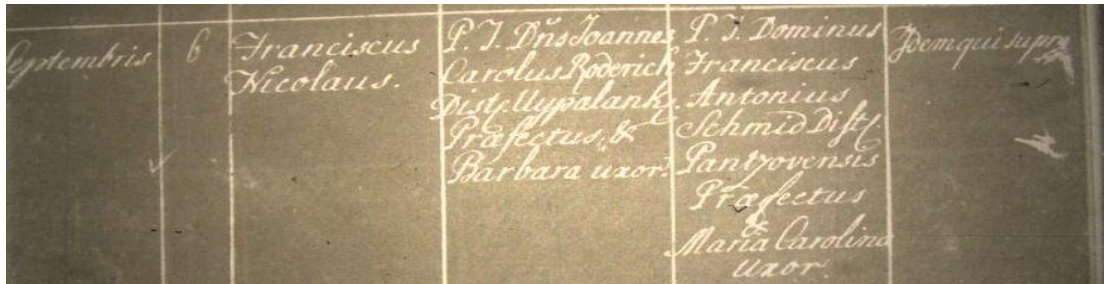 Septembris
6
Franciscus
Nicolaus.
P. T. Dn̄s Joannes
Carolus Roderich
Dist. Uypalank.
Præfectus, &
Barbara uxor.
P. T. Dominus
Franciscus
Antonius
Schmid Dist.
Pantzovensis
Præfectus
&
Maria Carolina
Uxor.
Idem qui supra